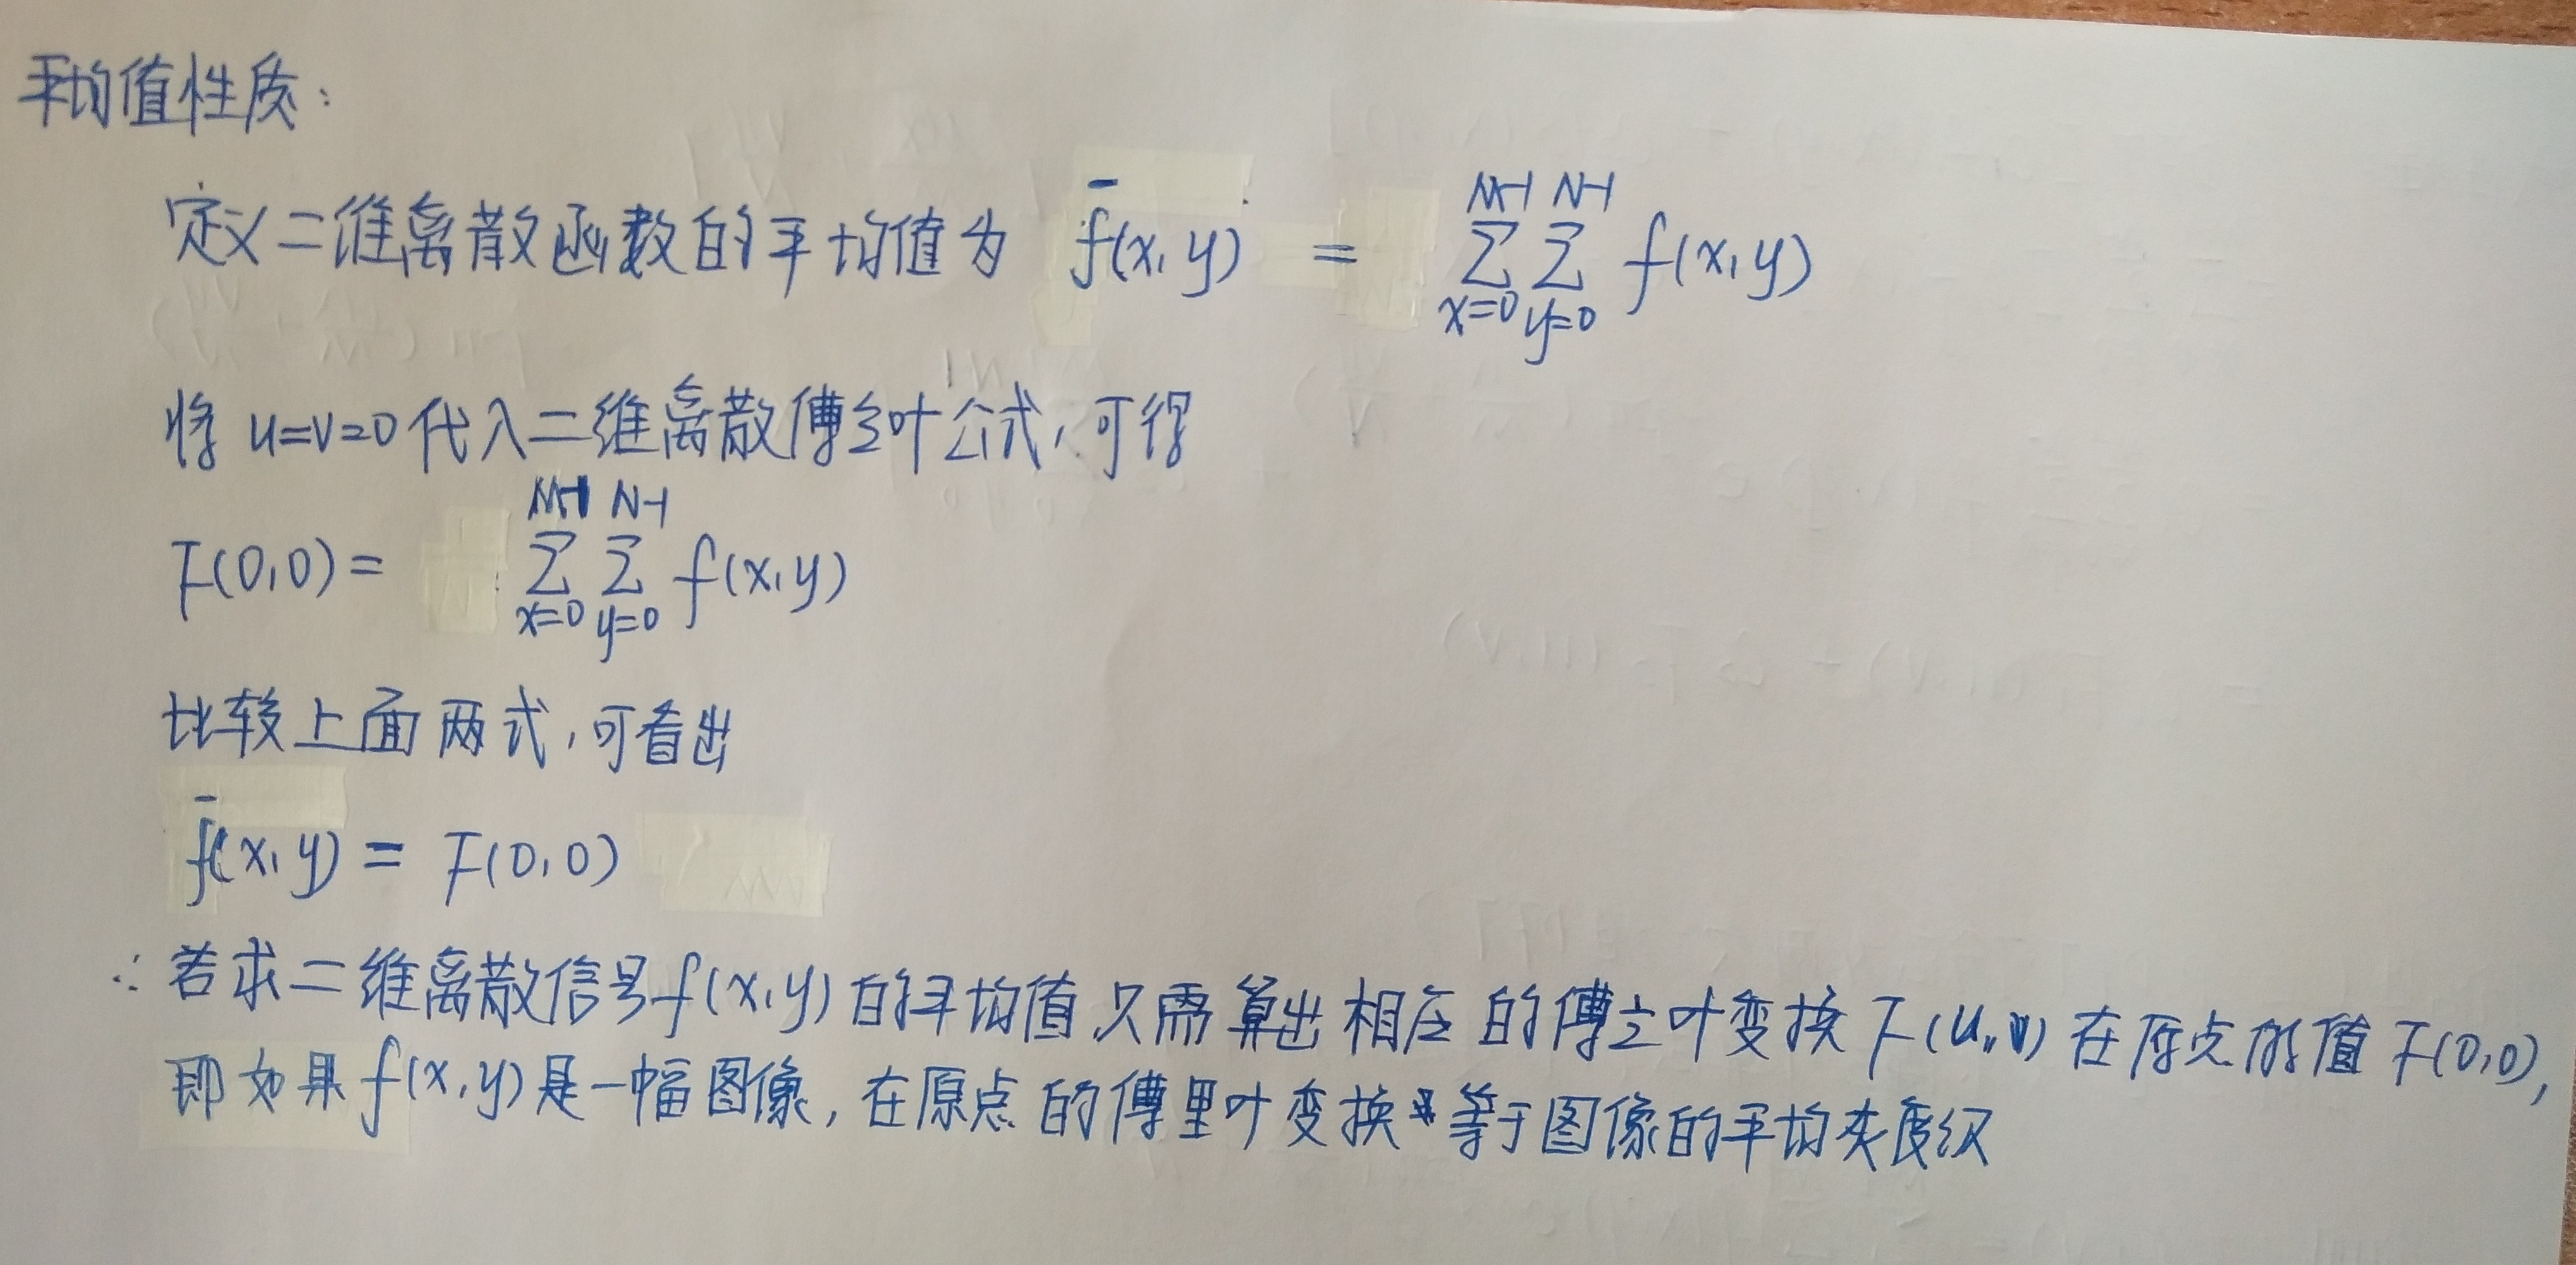 平均值性质：
定义二维离散函数的平均值为 f̄(x,y) = ∑_{x=0}^{M-1} ∑_{y=0}^{N-1} f(x,y)
将 u=v=0 代入二维离散傅里叶公式，可得
F(0,0) = ∑_{x=0}^{M-1} ∑_{y=0}^{N-1} f(x,y)
比较上面两式，可看出
f̄(x,y) = F(0,0)
∴ 若求二维离散信号f(x,y)的平均值只需算出相应的傅立叶变换F(u,v)在原点的值F(0,0),
即如果f(x,y)是一幅图像，在原点的傅里叶变换等于图像的平均灰度级